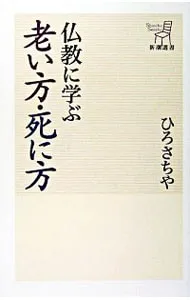 仏教に学ぶ
老い方・死に方
ひろさちや
新潮選書